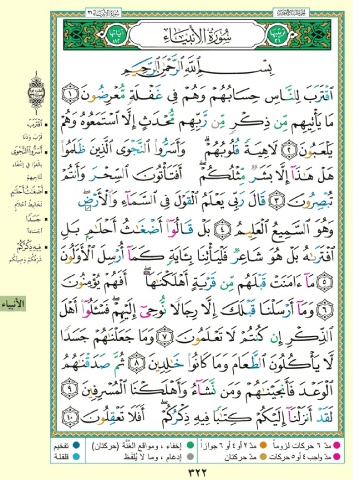 سورة الأنبياء
بِسْمِ ٱللَّهِ ٱلرَّحْمَٰنِ ٱلرَّحِيمِ
ٱقْتَرَبَ لِلنَّاسِ حِسَابُهُمْ وَهُمْ فِى غَفْلَةٍ مُّعْرِضُونَ ١
مَا يَأْتِيهِم مِّن ذِكْرٍ مِّن رَّبِّهِم مُّحْدَثٍ إِلَّا ٱسْتَمَعُوهُ وَهُمْ
يَلْعَبُونَ ٢ لَاهِيَةً قُلُوبُهُمْ وَأَسَرُّوا۟ ٱلنَّجْوَى ٱلَّذِينَ ظَلَمُوا۟
هَلْ هَٰذَآ إِلَّا بَشَرٌ مِّثْلُكُمْ أَفَتَأْتُونَ ٱلسِّحْرَ وَأَنتُمْ
تُبْصِرُونَ ٣ قَالَ رَبِّى يَعْلَمُ ٱلْقَوْلَ فِى ٱلسَّمَآءِ وَٱلْأَرْضِ
وَهُوَ ٱلسَّمِيعُ ٱلْعَلِيمُ ٤ بَلْ قَالُوٓا۟ أَضْغَٰثُ أَحْلَٰمٍۭ بَلِ
ٱفْتَرَىٰهُ بَلْ هُوَ شَاعِرٌ فَلْيَأْتِنَا بِـَٔايَةٍ كَمَآ أُرْسِلَ ٱلْأَوَّلُونَ
٥ مَآ ءَامَنَتْ قَبْلَهُم مِّن قَرْيَةٍ أَهْلَكْنَٰهَآ أَفَهُمْ يُؤْمِنُونَ
٦ وَمَآ أَرْسَلْنَا قَبْلَكَ إِلَّا رِجَالًا نُّوحِىٓ إِلَيْهِمْ فَسْـَٔلُوٓا۟ أَهْلَ
ٱلذِّكْرِ إِن كُنتُمْ لَا تَعْلَمُونَ ٧ وَمَا جَعَلْنَٰهُمْ جَسَدًا
لَّا يَأْكُلُونَ ٱلطَّعَامَ وَمَا كَانُوا۟ خَٰلِدِينَ ٨ ثُمَّ صَدَقْنَٰهُمُ
ٱلْوَعْدَ فَأَنجَيْنَٰهُمْ وَمَن نَّشَآءُ وَأَهْلَكْنَا ٱلْمُسْرِفِينَ ٩
لَقَدْ أَنزَلْنَآ إِلَيْكُمْ كِتَٰبًا فِيهِ ذِكْرُكُمْ أَفَلَا تَعْقِلُونَ ١٠
ٱقْتَرَبَ
أَسَرُّوا۟ ٱلنَّجْوَى
أَضْغَٰثُ أَحْلَٰمٍ
جَسَدًا
فِيهِ ذِكْرُكُمْ
الأنبياء
مدّ ٦ حركات لزوماً مدّ ٢ أو ٤ أو ٦ جوازاً إخفاء، ومواقع الغُنَّة (حركتان) تفخيم
مدّ واجب ٤ أو ٥ حركات مدّ حركتان إدغام، وما لا يُلفظ قلقلة
٣٢٢